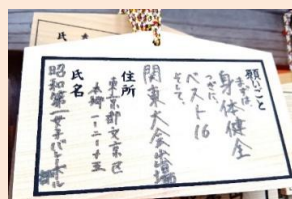 願いごと
まずは、
身体健全
つぎに、
ベスト16
そして、
関東大会出場
住所
東京都文京区
本郷一ー二ー十五
氏名
昭和第一女子バレーボール